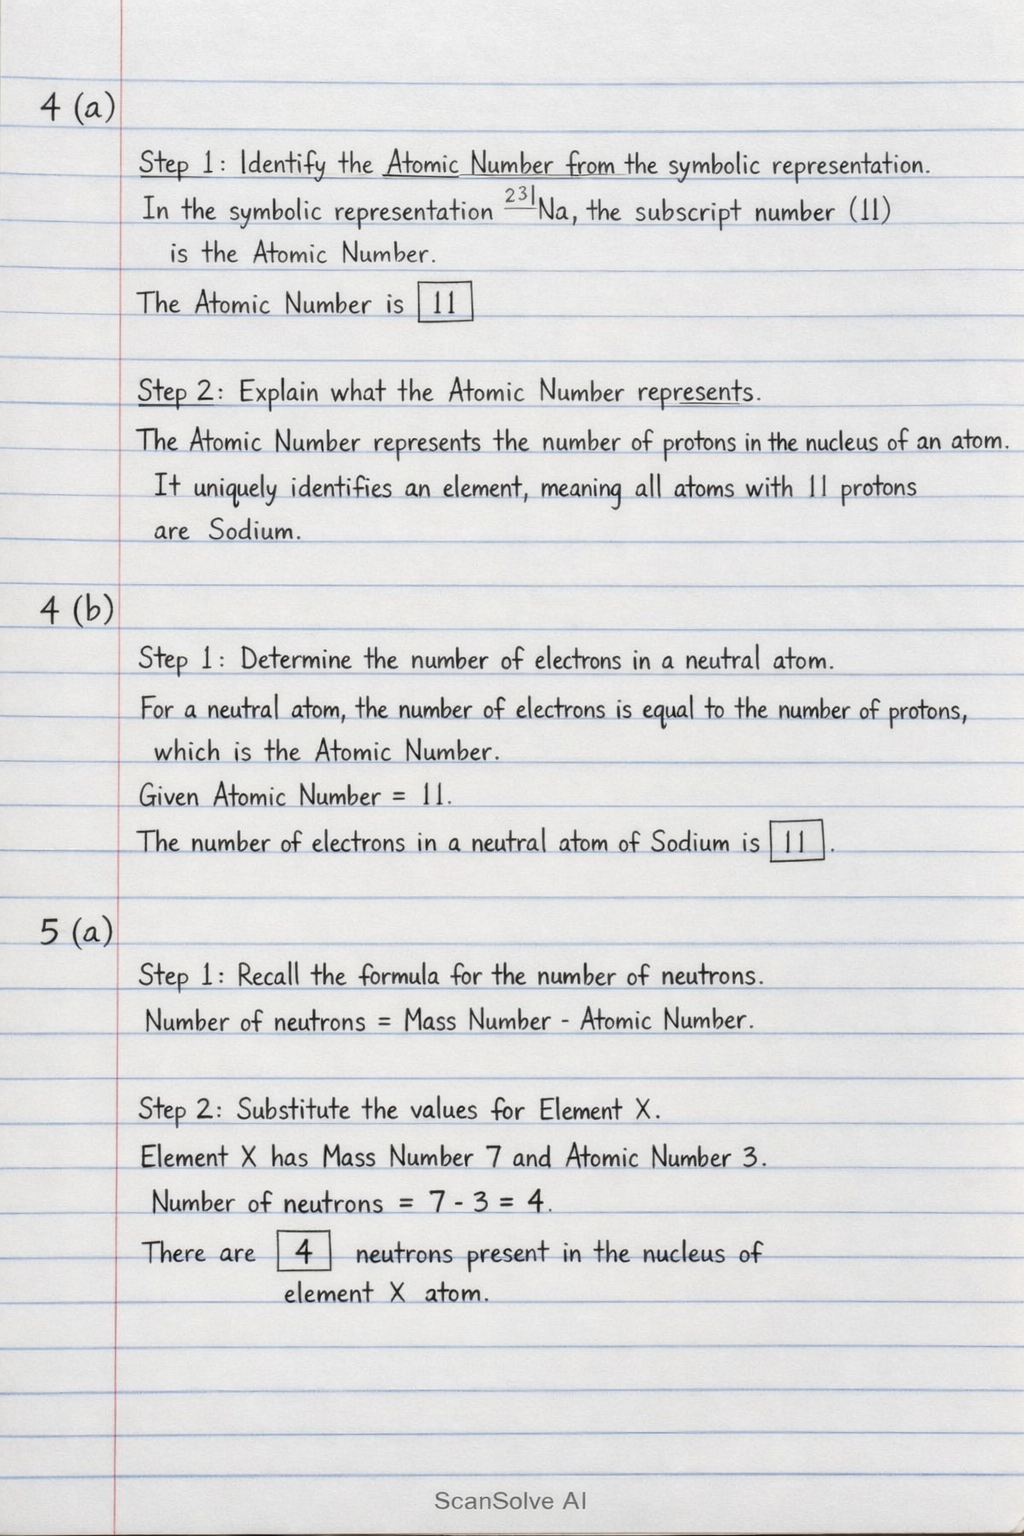 4 (a)
Step 1: Identify the Atomic Number from the symbolic representation.
In the symbolic representation ²³¹Na, the subscript number (11)
is the Atomic Number.
The Atomic Number is 11
Step 2: Explain what the Atomic Number represents.
The Atomic Number represents the number of protons in the nucleus of an atom.
It uniquely identifies an element, meaning all atoms with 11 protons
are Sodium.
4 (b)
Step 1: Determine the number of electrons in a neutral atom.
For a neutral atom, the number of electrons is equal to the number of protons,
which is the Atomic Number.
Given Atomic Number = 11.
The number of electrons in a neutral atom of Sodium is 11.
5 (a)
Step 1: Recall the formula for the number of neutrons.
Number of neutrons = Mass Number - Atomic Number.
Step 2: Substitute the values for Element X.
Element X has Mass Number 7 and Atomic Number 3.
Number of neutrons = 7 - 3 = 4.
There are 4 neutrons present in the nucleus of
element X atom.
ScanSolve AI